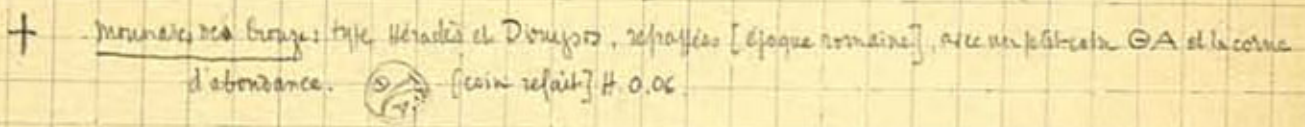 + Monnaies de bronze: type Héraclès et Dionysos, refrappées [époque romaine], avec un petit coin ΘΑ et la corne
d'abondance. [coin refait] H 0.06